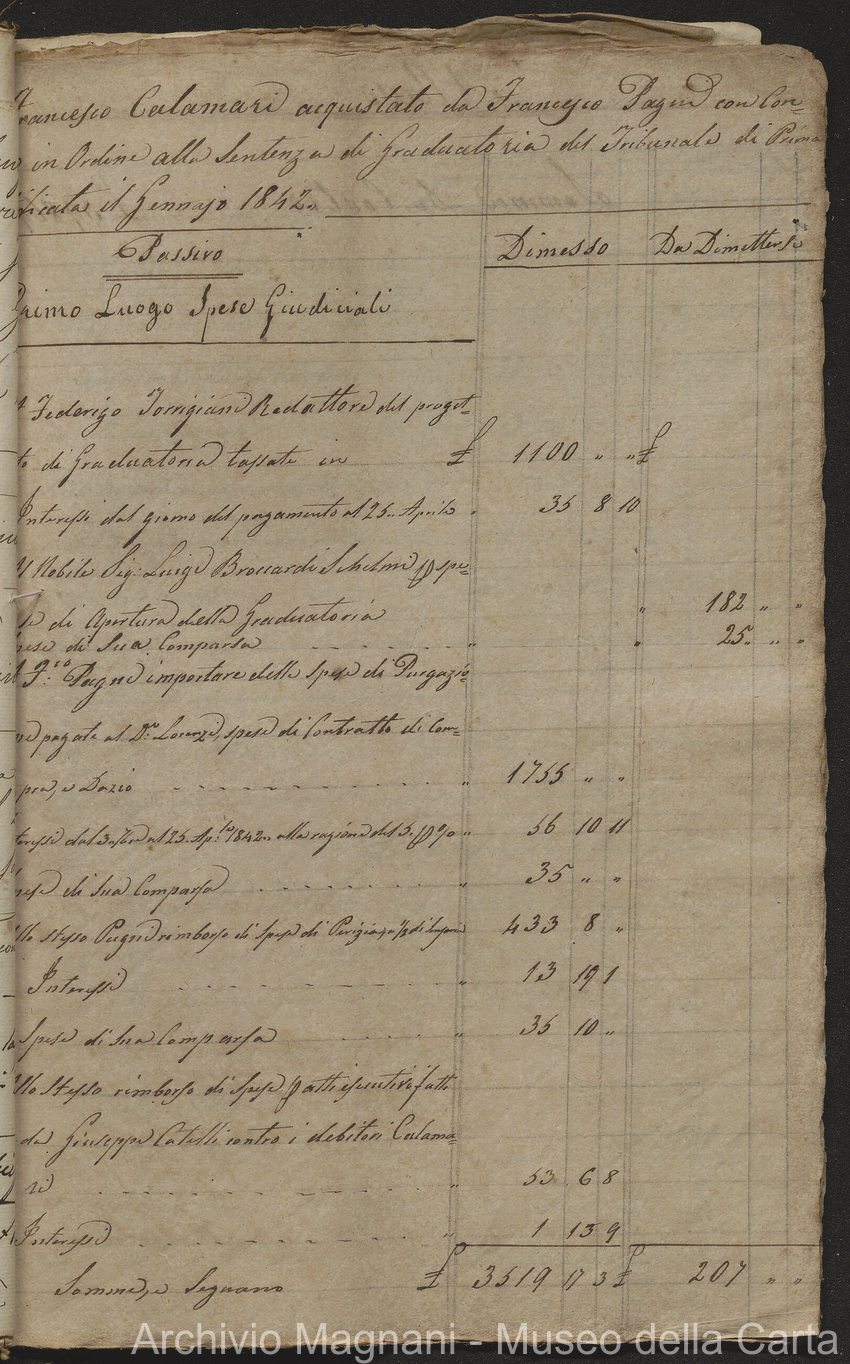 Francesco Calamari acquistato da Francesco Pagni con Con=
in Ordine alla Sentenza di Graduatoria del Tribunale di Prima
ificata il Gennajo 1842.
Passivo
Dimesso Da Dimettersi
Primo Luogo Spese Giudiciali
Federigo Torrigiani Redattore del proget=
to di Graduatoria tassate in £ 1100 " " £
Interessi dal giorno del pagamento al 25. Aprile " 35 8 10
Al Nobile Sig: Luigi Broccardi Schelmi p spe=
se di Apertura della Graduatoria " 182 " "
Spese di Sua Comparsa " " 25 " "
F.sco Pagni importare delle Spese di Purgazio=
ne pagate al D.re Lorenzi, spese di Contratto di Com=
pra, e Dazio " 1755 " "
teressi dal 3 al 25. Ap.le 1842. alla ragione del 5. p % " 56 10 11
Spese di Sua Comparsa " 35 " "
llo stesso Pagni rimborso di Spese di Perizia, e 1/2 di 433 8 "
Interessi " 13 19 1
Spese di Sua Comparsa " 35 10 "
llo stesso rimborso di Spese p atti esecutivi fatti
da Giuseppe Catelli contro i debitori Calama=
ri " 53 6 8
Interessi " 1 13 9
Somme, e Seguano £ 3519 17 3 £ 207 " "
Archivio Magnani - Museo della Carta